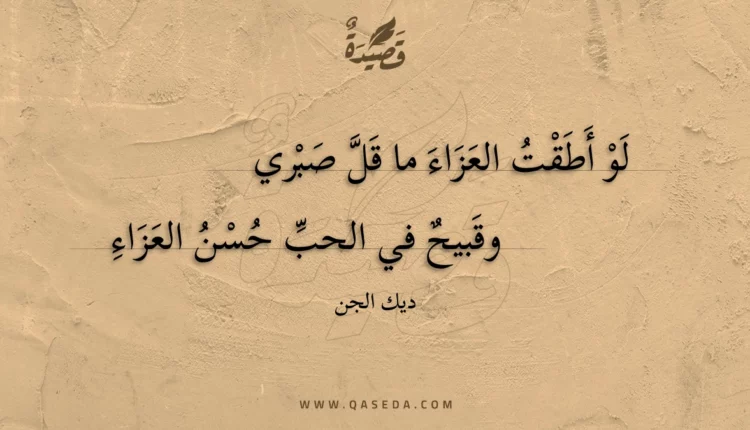 قَصِيدَةٌ
لَوْ أَطَقْتُ العَزَاءَ ما قَلَّ صَبْري
وقَبيحٌ في الحبِّ حُسْنُ العَزَاءِ
ديك الجن
WWW.QASEDA.COM